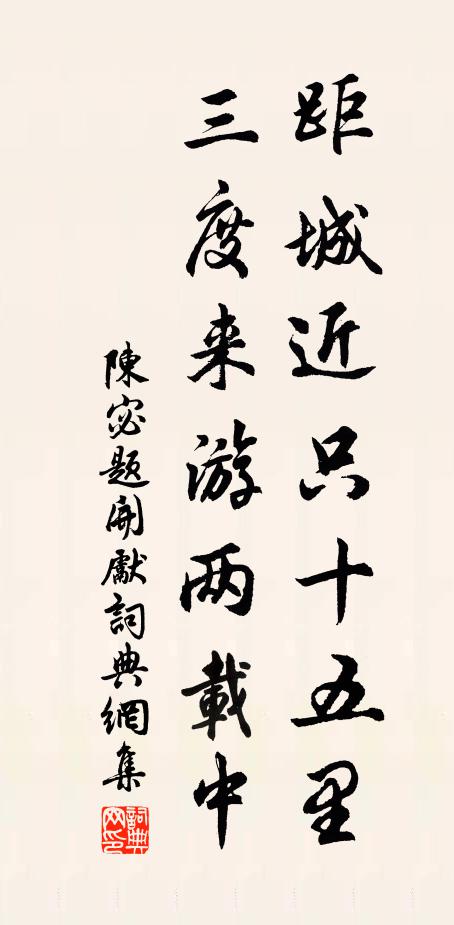 距城近只十五里
三度来游两載中
陳宓題開巖詞典網集
詞典网印